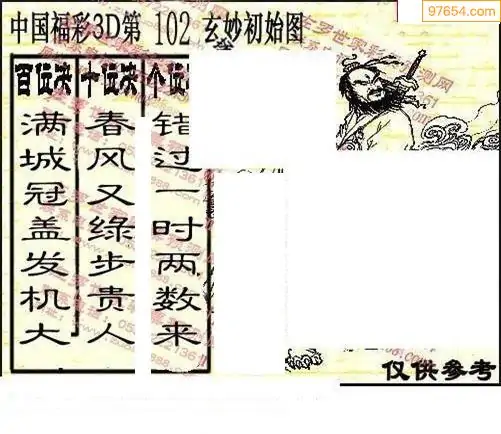 97654.com
中国福彩3D第 102 玄妙初始图
百位决
满城冠盖发机大
十位决
春风又绿步贵人
个位
错过一时两数来
仅供参考